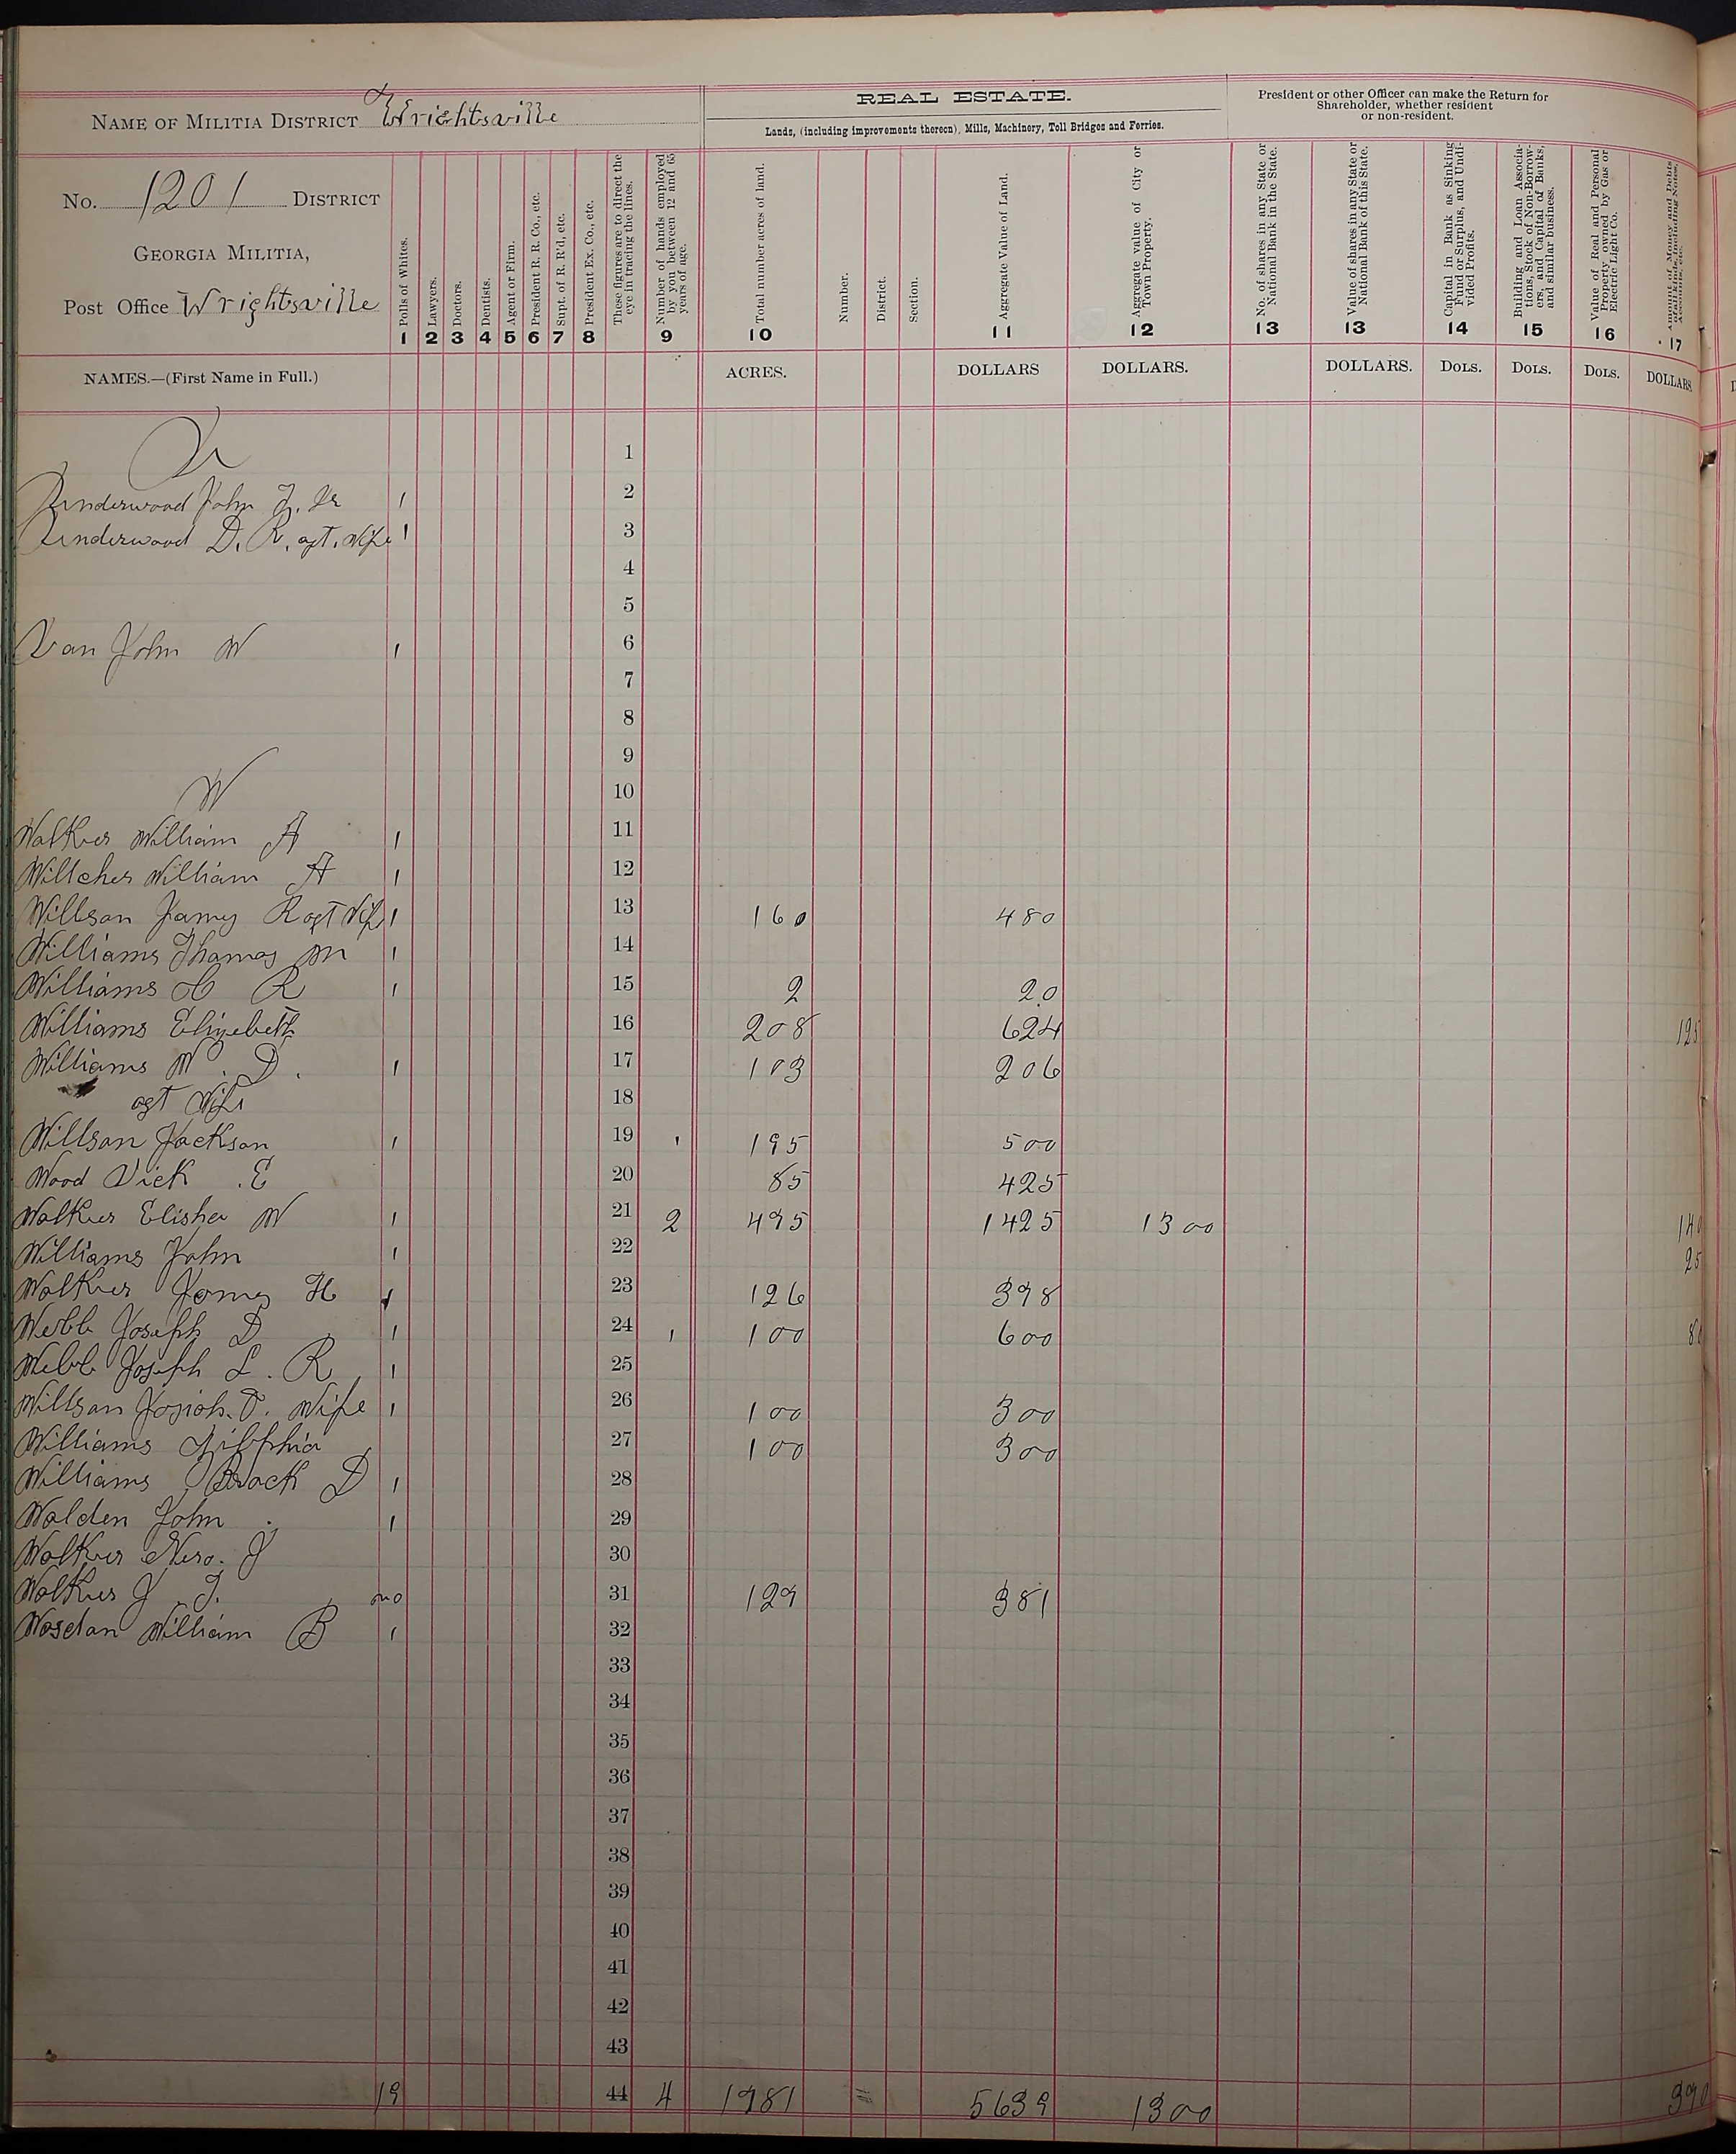 NAME OF MILITIA DISTRICT Wrightsville
No. 1201 DISTRICT
GEORGIA MILITIA,
Post Office Wrightsville
REAL ESTATE.
Lands, (including improvements thereon), Mills, Machinery, Toll Bridges and Ferries.
President or other Officer can make the Return for
Shareholder, whether resident
or non-resident.
Polls of Whites. 1
Lawyers. 2
Doctors. 3
Dentists. 4
Agent or Firm. 5
President R. R. Co., etc. 6
Supt. of R. R'd, etc. 7
President Ex. Co., etc. 8
These figures are to direct the
eye in tracing the lines.
Number of hands employed
by you between 12 and 65
years of age. 9
Total number acres of land. 10
Number.
District.
Section.
Aggregate Value of Land. 11
Aggregate value of City or
Town Property. 12
No. of shares in any State or
National Bank in the State. 13
Value of shares in any State or
National Bank of this State. 13
Capital in Bank as Sinking
Fund or Surplus, and Undi-
vided Profits. 14
Building and Loan Associa-
tions, Stock of Non-Borrow-
ers, and Capital of Banks,
and similar business. 15
Value of Real and Personal
Property owned by Gas or
Electric Light Co. 16
Amount of Money and Debts
of all kinds, including Notes,
Accounts, etc. 17
NAMES.—(First Name in Full.) ACRES. DOLLARS DOLLARS. DOLLARS. DOLS. DOLS. DOLS. DOLLARS
U 1
Underwood John J. Jr 1 2
Underwood D. R. agt. Wife 1 3
4
5
Van John W 1 6
7
8
9
W 10
Walker William A 1 11
Willcher William A 1 12
Willson James R agt Wife 1 13 160 480
Williams Thomas M 1 14
Williams R 1 15 2 20
Williams Elizebeth 16 208 624 125
Williams W. D. 1 17 103 206
agt Wife 18
Willson Jackson 1 19 1 195 500
Wood Dick E 20 85 425
Walker Elisher W 1 21 2 495 1425 1300 140
Williams John 1 22 25
Walker James H 1 23 126 398
Webb Joseph D 1 24 1 100 600 80
Webb Joseph L. R 1 25
Willson Josiah. T. Wife 1 26 100 300
Williams 27 100 300
Williams Brack D 1 28
Walden John 1 29
Walker Nero. J 30
Walker J T. no 31 129 381
William B 1 32
33
34
35
36
37
38
39
40
41
42
43
19 44 4 1981 = 5639 1300 390